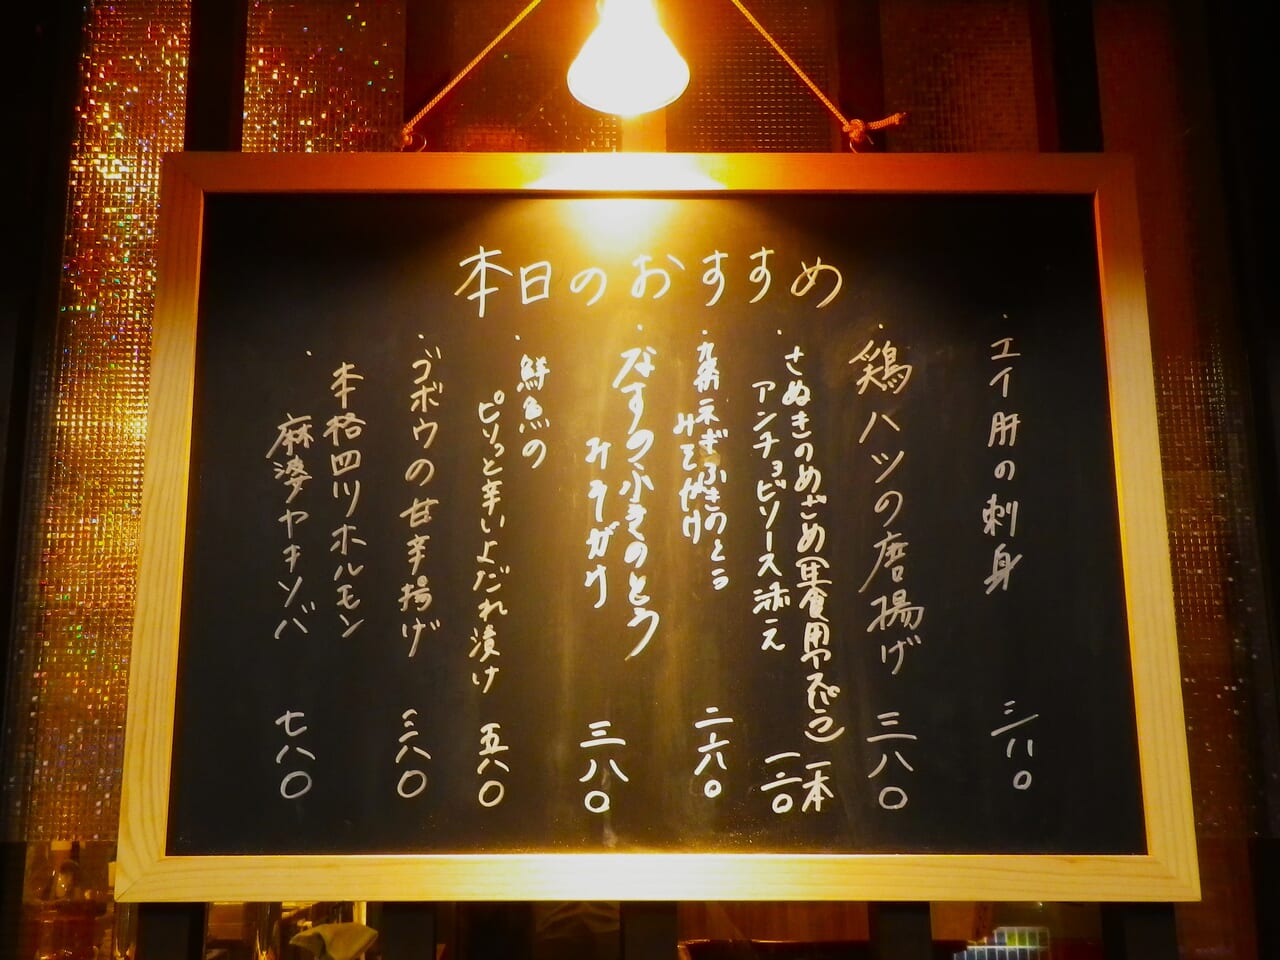 本日のおすすめ
・エイ肝の刺身 三八〇
・鶏ハツの唐揚げ 三八〇
・さぬきのめざめ(生食用アスパラ)一本
アンチョビソース添え 一二〇
・九州ネギふきのとう
みそがけ 二六〇
・なすのふきのとう
みそがけ 三八〇
・鮮魚の
ピリっと辛いよだれ漬け 五八〇
・ゴボウの甘辛揚げ 三八〇
・本格四川ホルモン
麻婆ヤキソバ 七八〇